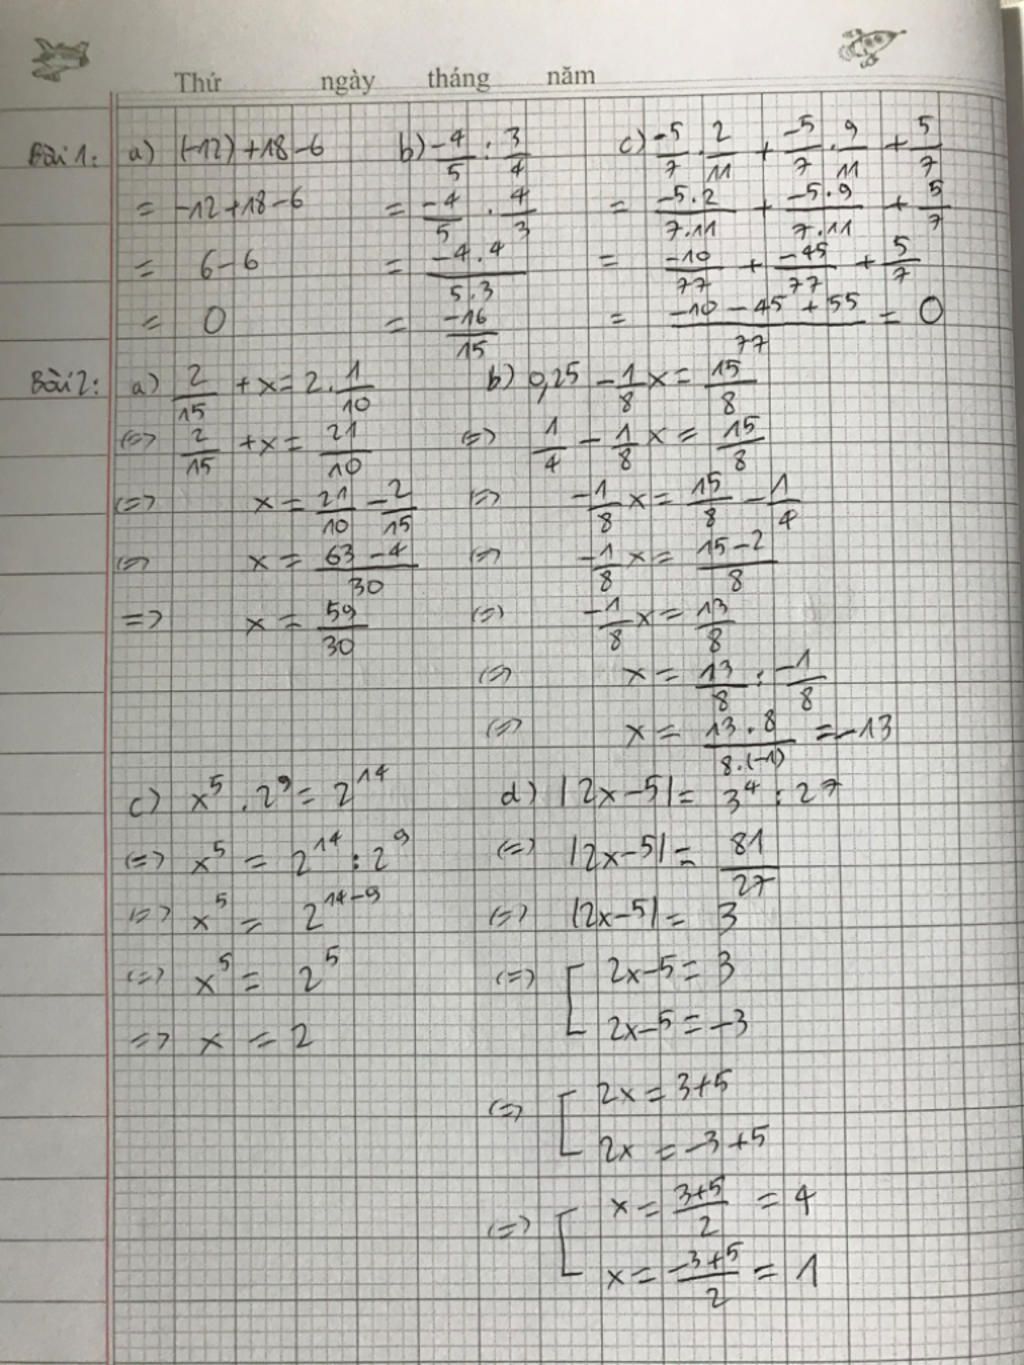 Thứ ngày tháng năm
Bài 1: a) (-12) + 18 - 6
= -12 + 18 - 6
= 6 - 6
= 0
b) -4/5 : 3/4
= -4/5 . 4/3
= -4.4/5.3
= -16/15
c) -5/7 . 2/11 + -5/7 . 9/11 + 5/7
= -5.2/7.11 + -5.9/7.11 + 5/7
= -10/77 + -45/77 + 5/7
= -10 - 45 + 55/77 = 0
Bài 2: a) 2/15 + x = 2 . 1/10
(=) 2/15 + x = 21/10
(=) x = 21/10 - 2/15
(=) x = 63 - 4/30
=> x = 59/30
b) 0,25 - 1/8 x = 15/8
(=) 1/4 - 1/8 x = 15/8
(=) -1/8 x = 15/8 - 1/4
(=) -1/8 x = 15-2/8
(=) -1/8 x = 13/8
(=) x = 13/8 : -1/8
(=) x = 13.8/8.(-1) = -13
c) x⁵ . 2⁹ = 2¹⁴
(=) x⁵ = 2¹⁴ : 2⁹
(=) x⁵ = 2¹⁴⁻⁹
(=) x⁵ = 2⁵
=> x = 2
d) |2x-5| = 3⁴ : 27
(=) |2x-5| = 81/27
(=) |2x-5| = 3
(=) [ 2x-5 = 3
2x-5 = -3
(=) [ 2x = 3+5
2x = -3+5
(=) [ x = 3+5/2 = 4
x = -3+5/2 = 1